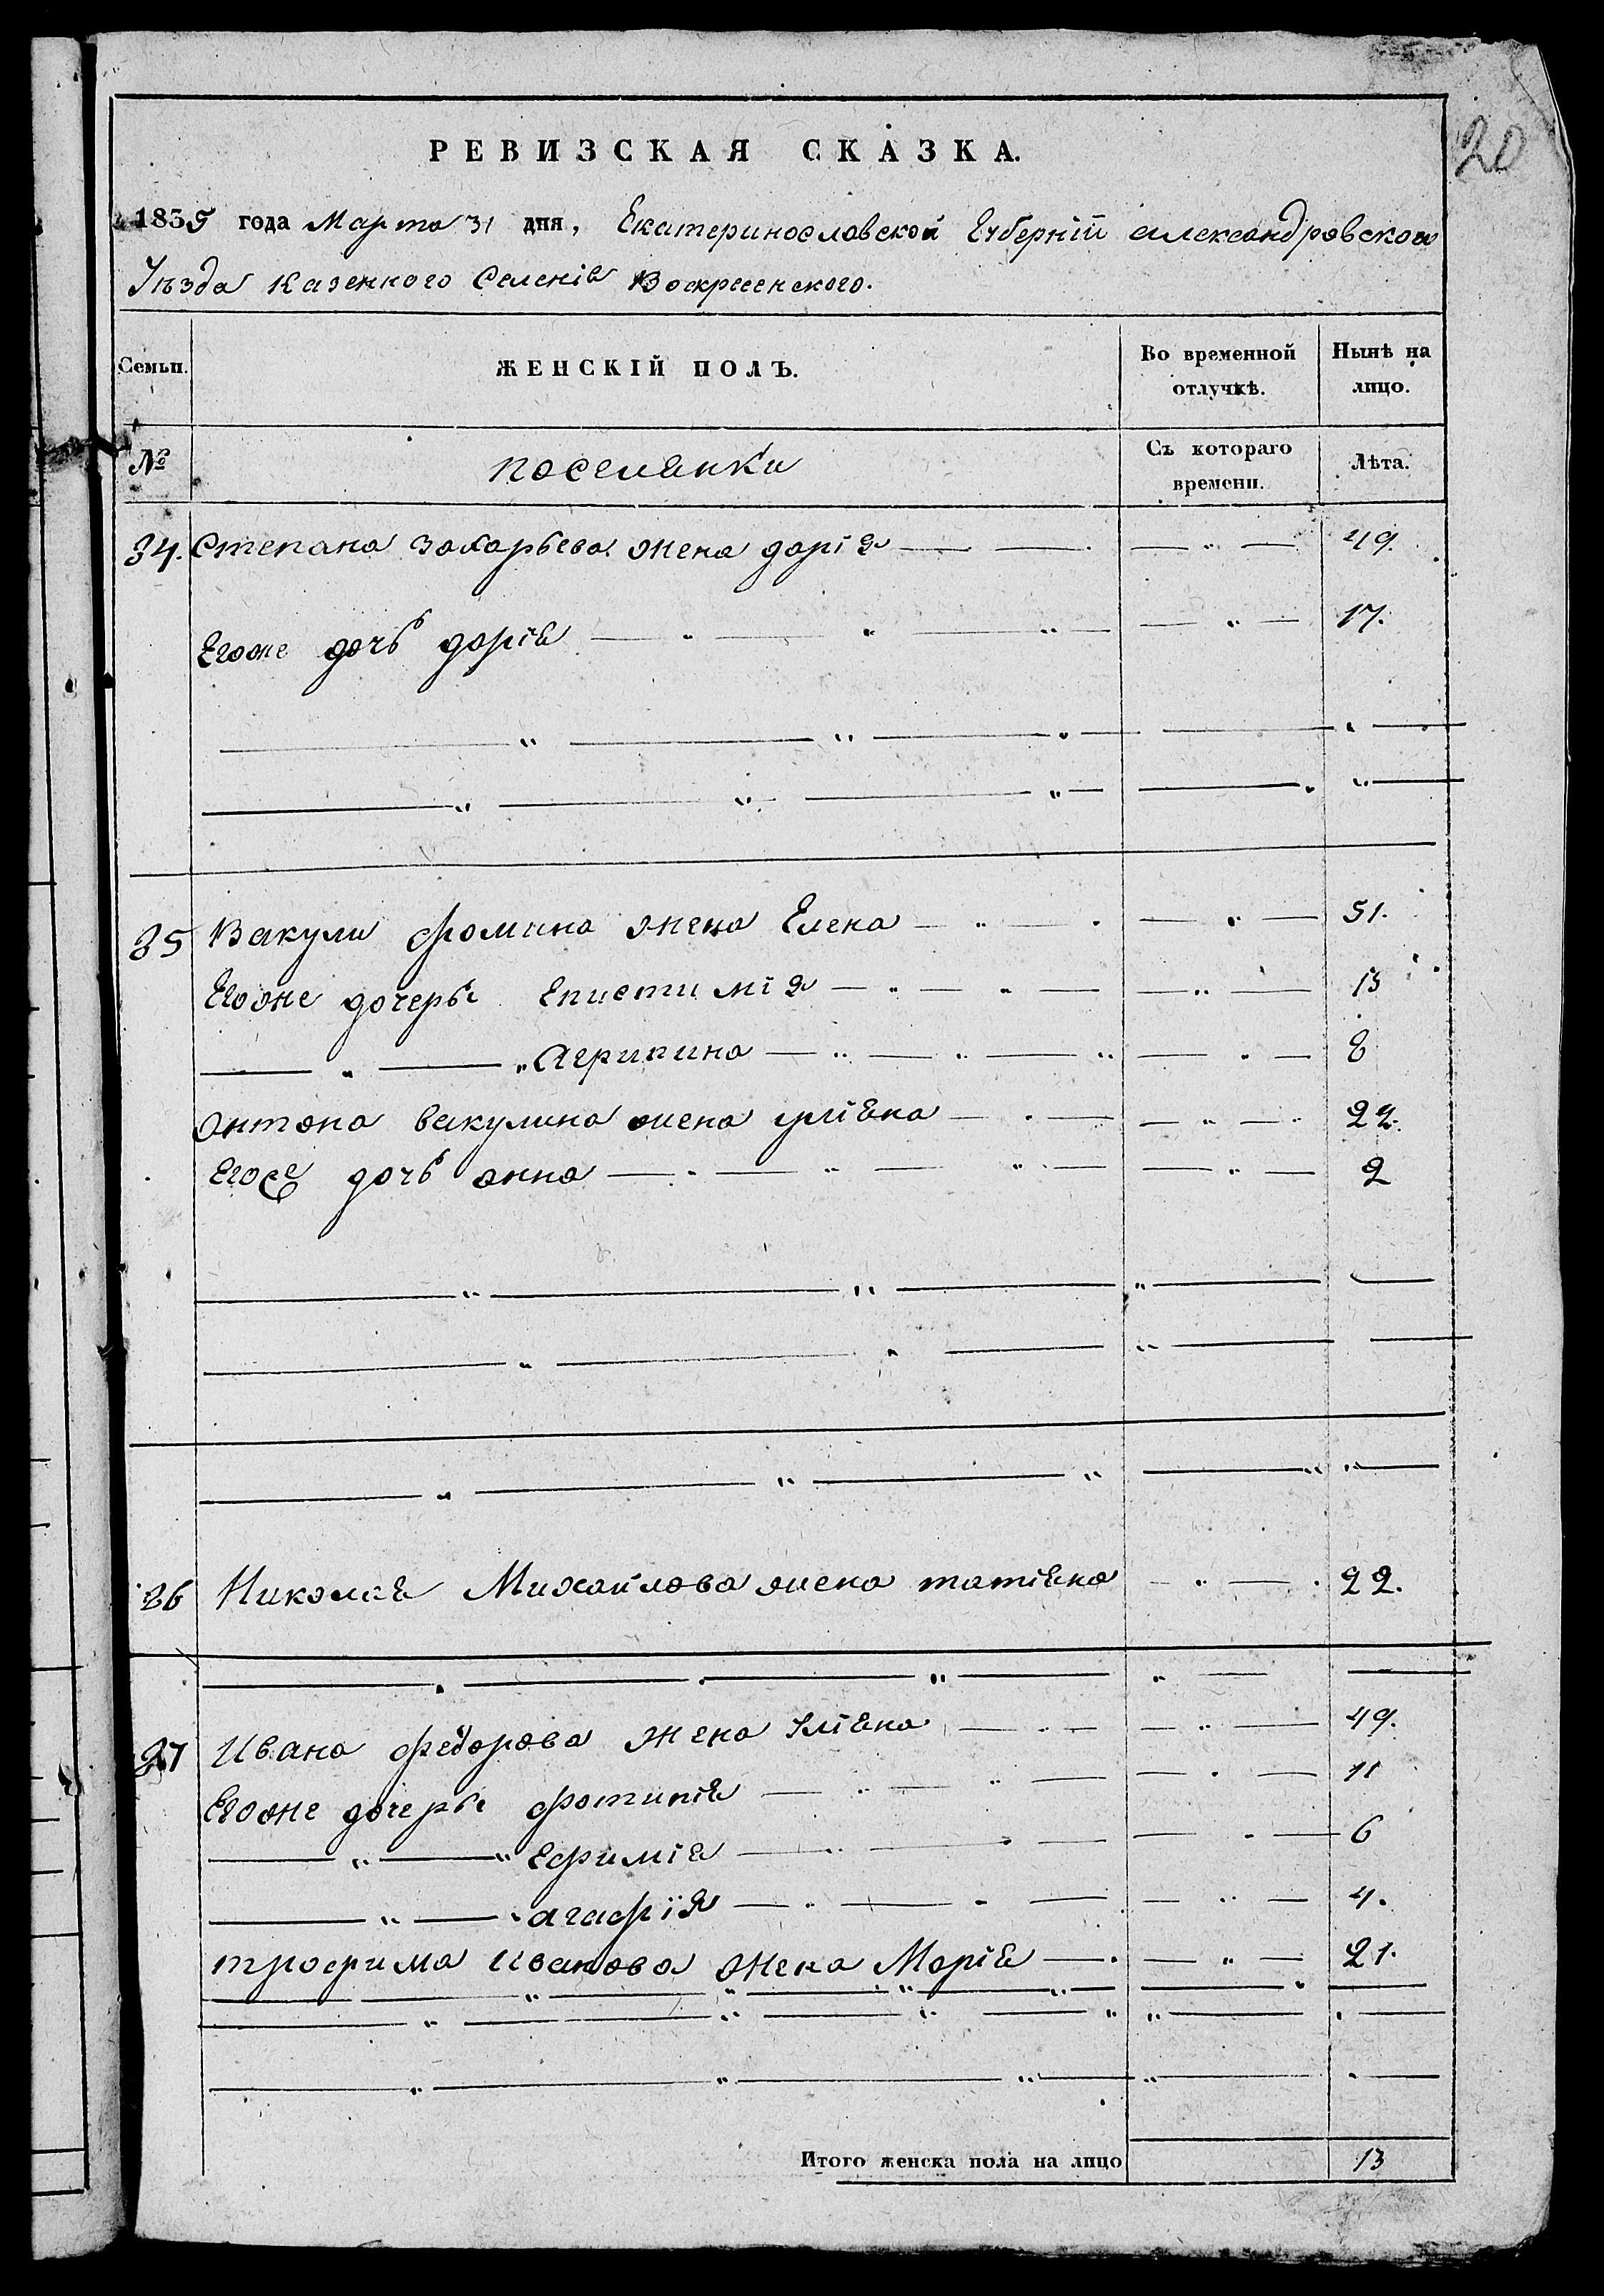 20
РЕВИЗСКАЯ СКАЗКА.
1835 года Марта 31 дня, Екатеринославской Губерніи александровского
Уѣзда казенного Селенія Воскресенского.
Семьи. ЖЕНСКІЙ ПОЛЪ. Во временной отлучкѣ. Нынѣ на лицо.
№ поселянки Съ котораго времени. Лѣта.
34. Степана захарьева жена дарія 49.
Егоже дочь дарія 17.
35 Вакулы фомина жена Елена 51.
Егоже дочеры Епистимія 13
Агрипина 8
антона вакулина жена уліяна 22.
Егоже дочь анна 2
36 Николая Михайлова жена татіяна 22.
37 Ивана федорова жена уліяна 49.
Егоже дочеры фотинія 11
Ефимія 6
агафія 4.
трофима иванова жена Марія 21.
Итого женска пола на лицо 13